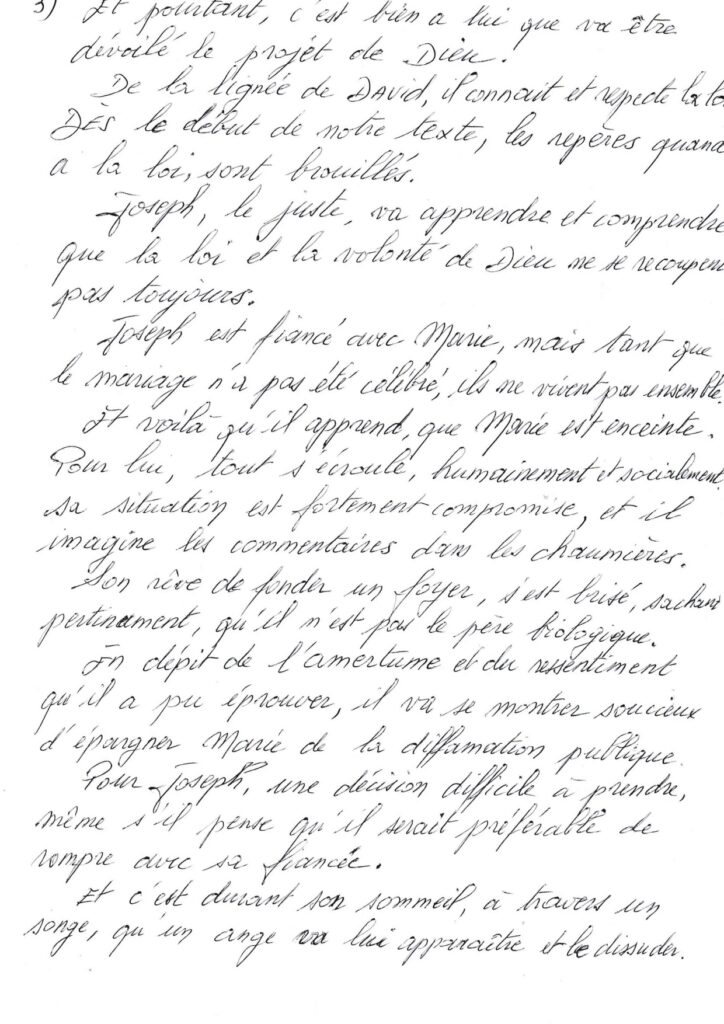 3) Et pourtant, c'est bien a lui que va être
dévoilé le projet de Dieu.
De la lignée de DAVID, il connait et respecte la lo
DÈS le début de notre texte, les repères quand
a la loi, sont brouillés.
Joseph, le juste, va apprendre et comprendre
que la loi et la volonté de Dieu ne se recoupen
pas toujours.
Joseph est fiancé avec Marie, mais tant que
le mariage n'a pas été célibré, ils ne vivent pas ensemble.
Et voilà qu'il apprend, que Marie est enceinte.
Pour lui, tout s'écroule, humainement et socialement
sa situation est fortement compromise, et il
imagine les commentaires dans les chaumières.
Son rêve de fonder un foyer, s'est brisé, sachant
pertinament, qu'il n'est pas le père biologique.
En dépit de l'amertume et du ressentiment
qu'il a pu éprouver, il va se montrer soucieux
d'épargner Marie de la diffamation publique.
Pour Joseph, une décision difficile à prendre,
même s'il pense qu'il serait préférable de
rompre avec sa fiancée.
Et c'est durant son sommeil, à travers un
songe, qu'un ange va lui apparaître et le dissuder.